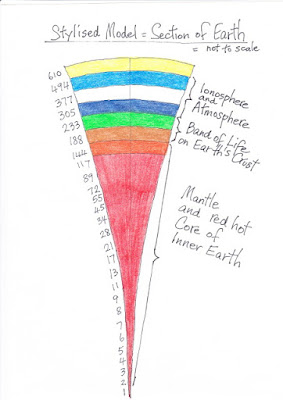 Stylised Model = Section of Earth
= not to scale
610
494
377
305
233
188
144
117
89
72
55
45
34
28
21
17
13
11
9
8
7
6
5
4
3
2
1
Ionosphere
and
Atmosphere
Band of Life
on Earth's Crust
Mantle
and red hot
Core of
Inner Earth